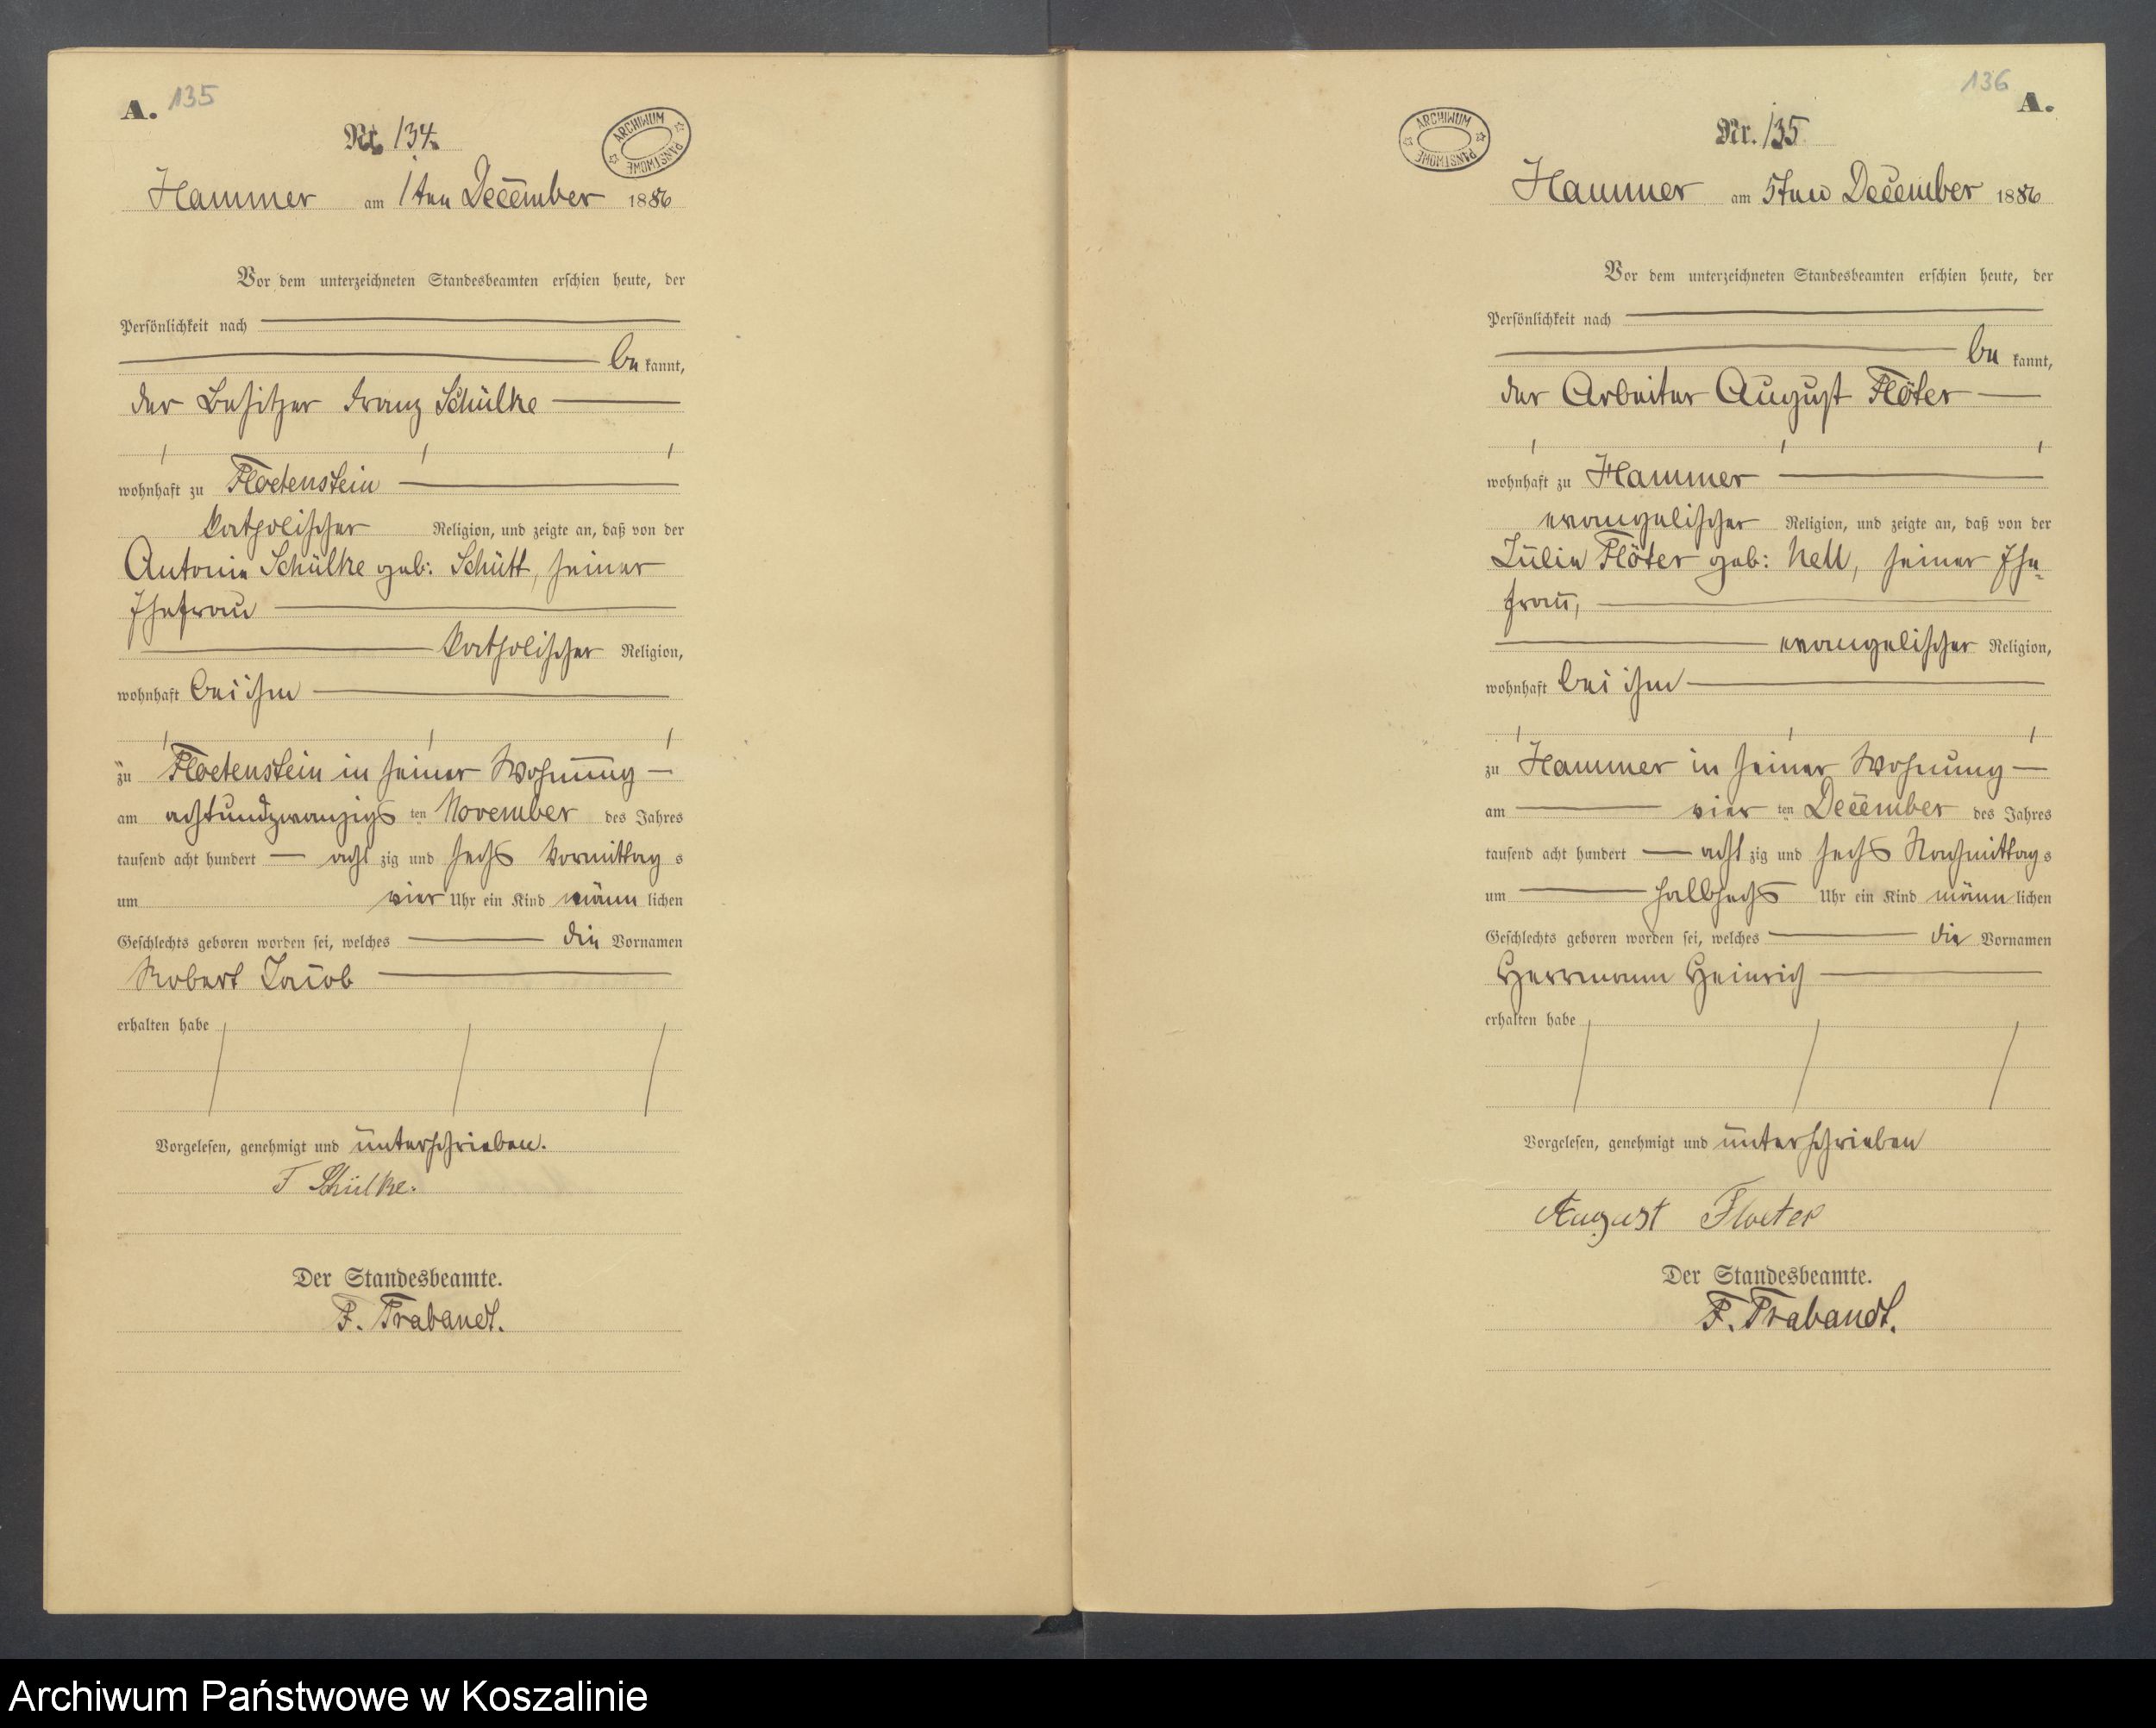 A. 135
Nr. 134.
ARCHIWUM PAŃSTWOWE
Hammer am 1ten December 1886
Vor dem unterzeichneten Standesbeamten erschien heute, der
Persönlichkeit nach
be kannt,
der Besitzer Franz Schülke
wohnhaft zu Floetenstein
katholischer Religion, und zeigte an, daß von der
Antonie Schülke geb: Schütt, seiner
Ehefrau
katholischer Religion,
wohnhaft bei ihm
zu Floetenstein in seiner Wohnung
am achtundzwanzigs ten November des Jahres
tausend acht hundert acht zig und sechs Vormittag s
um vier Uhr ein Kind männ lichen
Geschlechts geboren worden sei, welches die Vornamen
Robert Jacob
erhalten habe
Vorgelesen, genehmigt und unterschrieben.
F Schülke.
Der Standesbeamte.
F. Trabandt.
136 A.
Nr. 135.
ARCHIWUM PAŃSTWOWE
Hammer am 5ten December 1886
Vor dem unterzeichneten Standesbeamten erschien heute, der
Persönlichkeit nach
be kannt,
der Arbeiter August Flöter
wohnhaft zu Hammer
evangelischer Religion, und zeigte an, daß von der
Julie Flöter geb: Nell, seiner Ehe-
frau,
evangelischer Religion,
wohnhaft bei ihm
zu Hammer in seiner Wohnung
am vier ten December des Jahres
tausend acht hundert acht zig und sechs Nachmittag s
um halbsechs Uhr ein Kind männ lichen
Geschlechts geboren worden sei, welches die Vornamen
Herrmann Heinrich
erhalten habe
Vorgelesen, genehmigt und unterschrieben
August Floeter
Der Standesbeamte.
F. Trabandt.
Archiwum Państwowe w Koszalinie